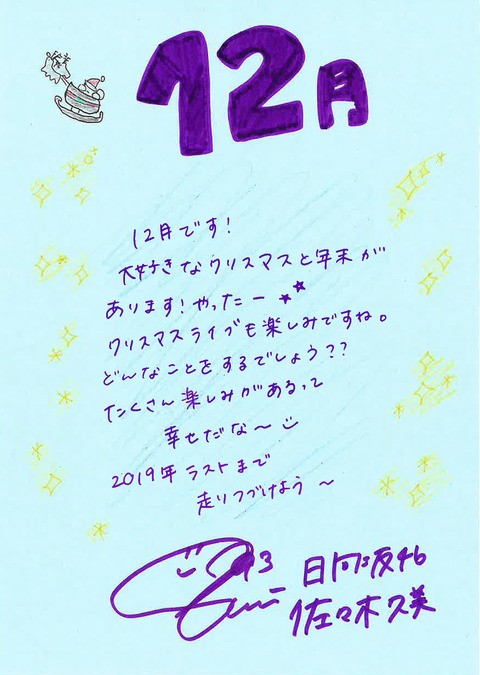 12月
12月です!
大好きなクリスマスと年末が
あります!やったー
クリスマスライブも楽しみですね。
どんなことをするでしょう??
たくさん楽しみがあるって
幸せだな〜
2019年ラストまで
走りつづけよう〜
日向坂46
佐々木久美